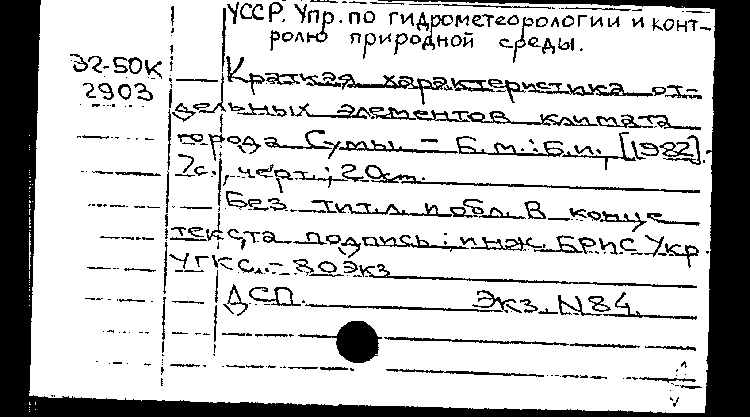 УССР. Упр. по гидрометеорологии и конт-
ролю природной среды.
32-50К
2903
Краткая характеристика от-
дельных элементов климата
города Сумы. – Б.м.:Б.и., [1982].
7с., черт.; 20см.
Без тит.л. и обл. В конце
текста подпись: инж. БРИС Укр
УГКС. – 80экз
ДСП. Экз. N84.